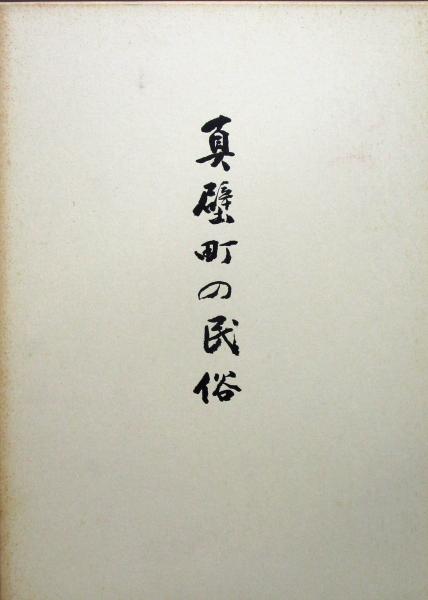 真壁町の民俗